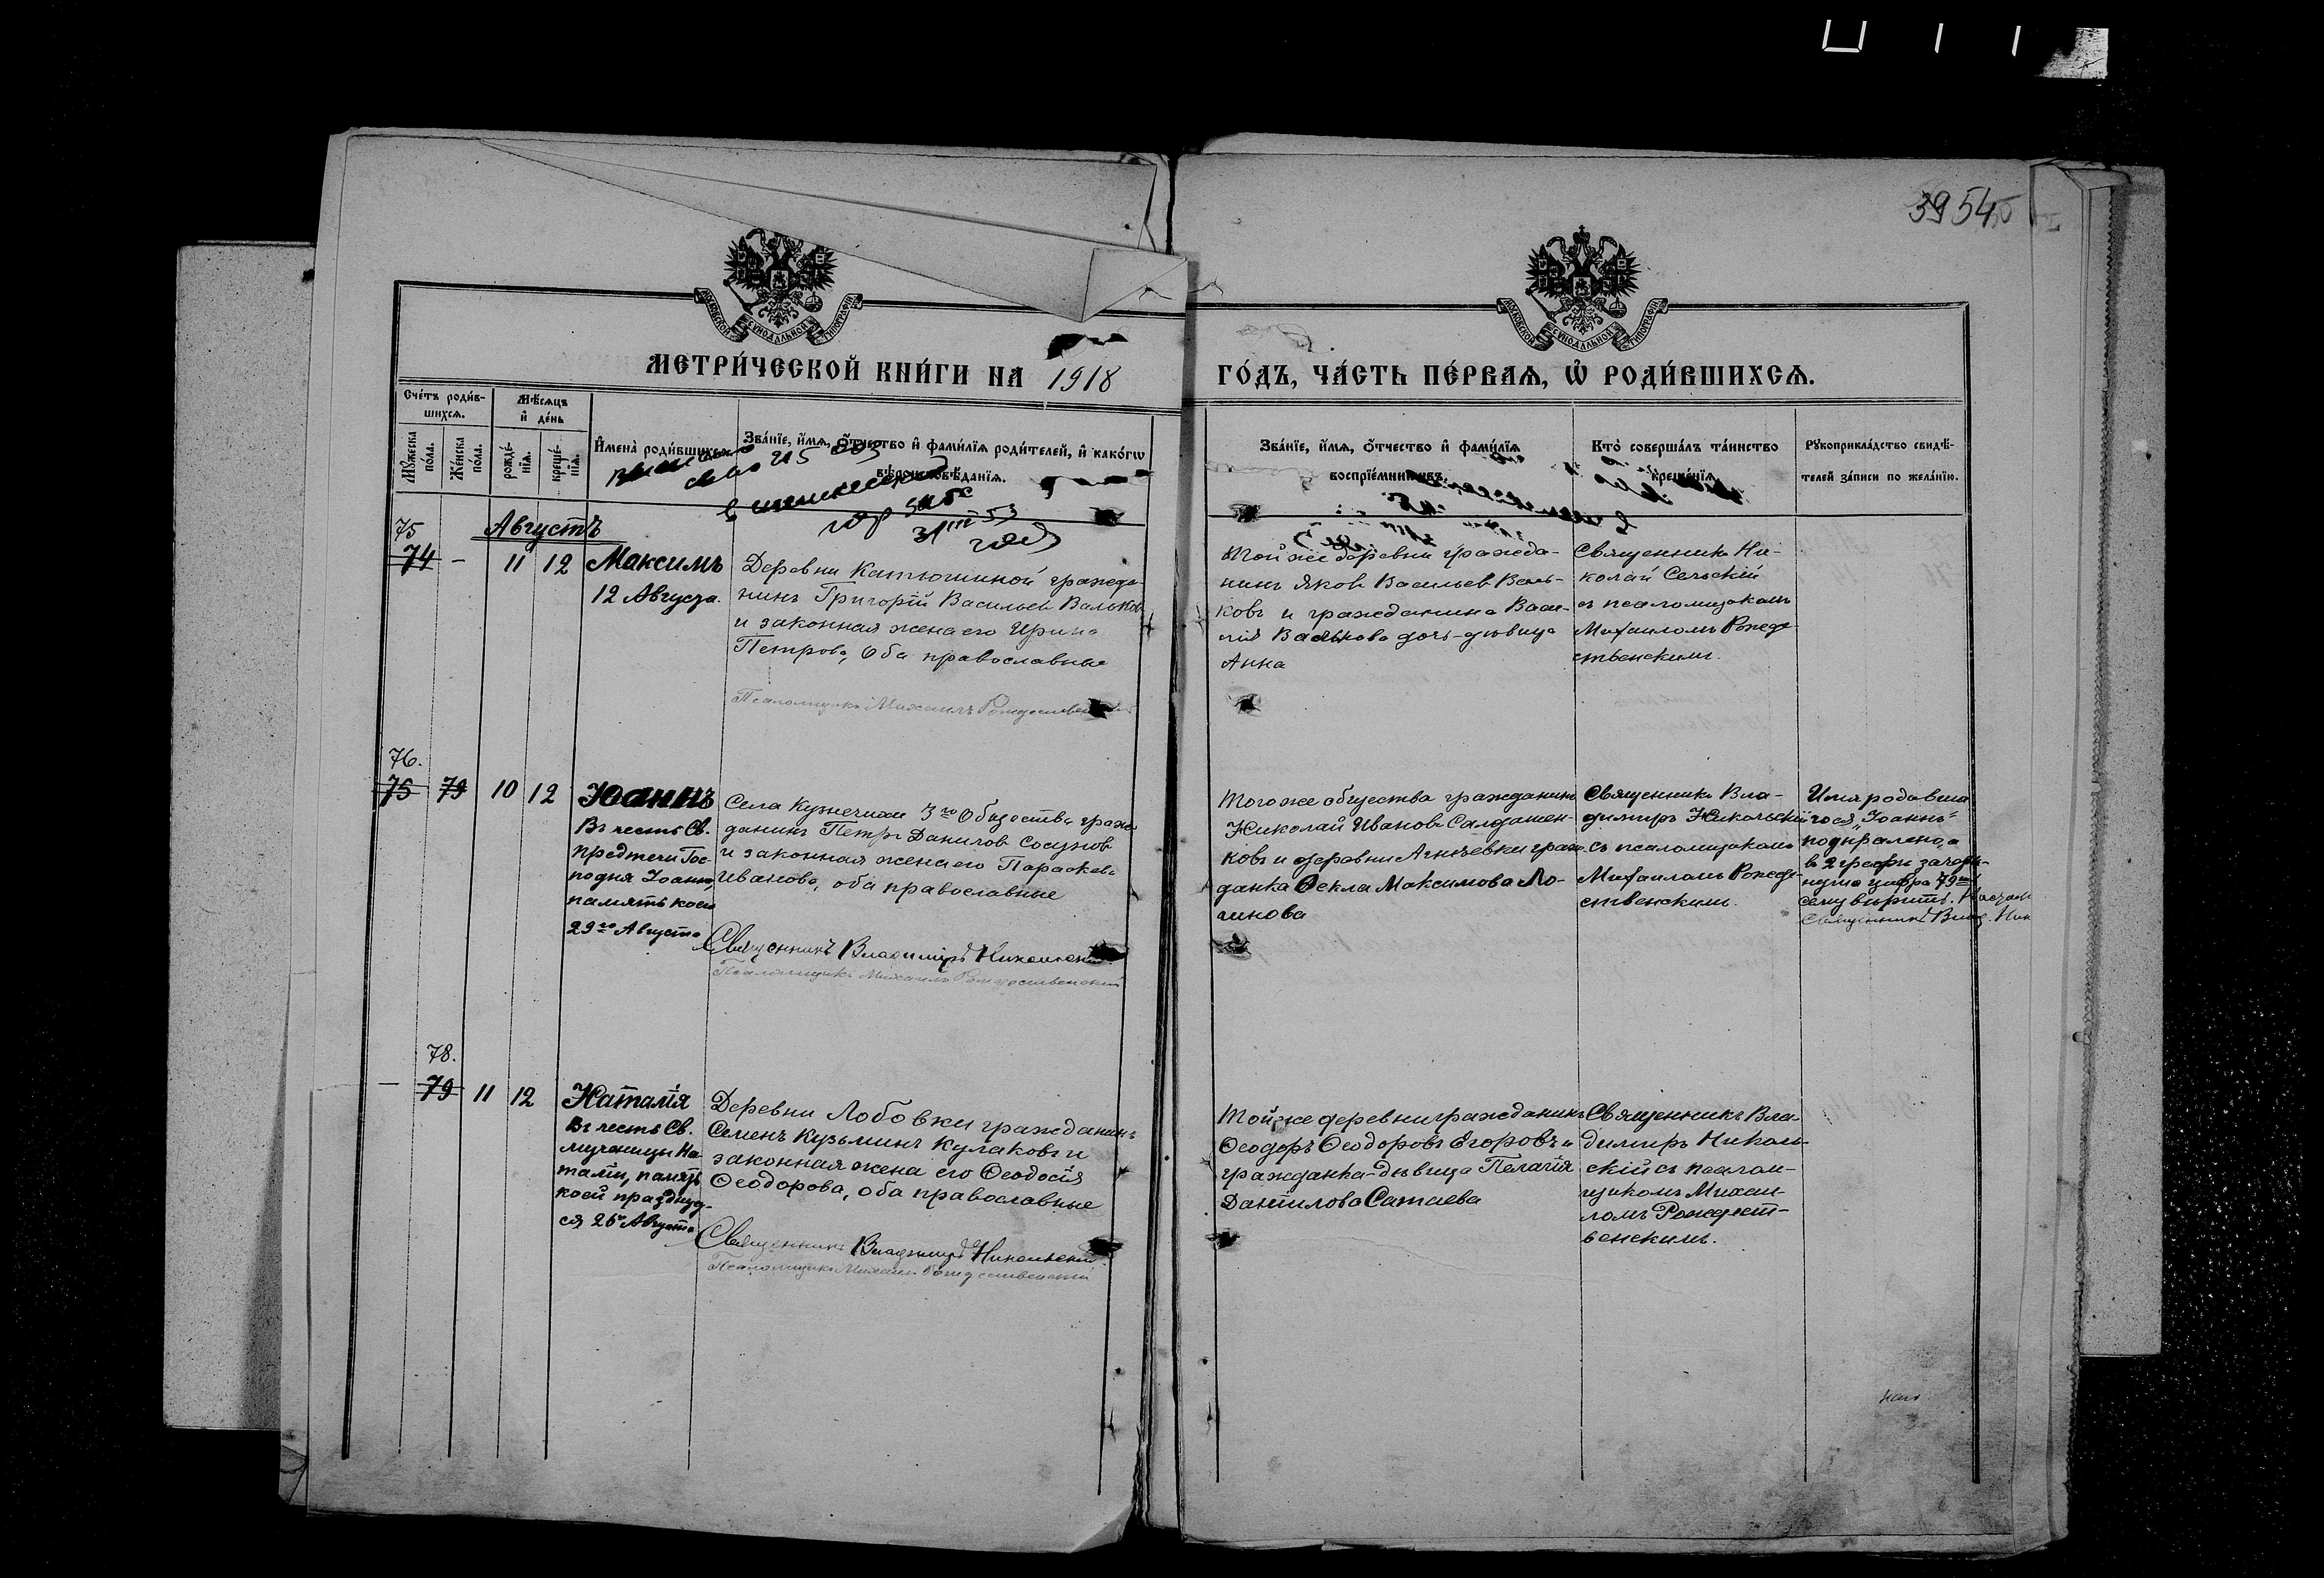 39 54
МОСКОВСКОЙ СѴНОДАЛЬНОЙ ТИПОГРАФІИ
МОСКОВСКОЙ СѴНОДАЛЬНОЙ ТИПОГРАФІИ
МЕТРИ́ЧЕСКОЙ КНИ́ГИ НА 1918
ГО́ДЪ, ЧА́СТЬ ПЕ́РВАѦ, Ѡ҆ РОДИ́ВШИХСѦ.
Сче́тъ роди́в-
шихсѧ.
Мꙋ́жеска
по́ла.
Же́нска
по́ла.
Мѣ́сѧцъ
и҆ де́нь
рожде́-
нїѧ.
креще́-
нїѧ.
И҆мена̀ роди́вшихсѧ.
Зва́нїе, и҆́мѧ, ѻ҆́тчество и҆ фами́лїѧ роди́телей, и҆ како́гѡ
вѣроисповѣ́данїѧ.
Зва́нїе, и҆́мѧ, ѻ҆́тчество и҆ фами́лїѧ
воспрїе́мникѡвъ.
Кто̀ соверша́лъ та́инство
креще́нїѧ.
Рꙋкоприкла́дство свидѣ́-
телей за́писи по жела́нїю.
31 III-53
Августъ
75
74 - 11 12
Максимъ
12 Августа.
Деревни Катюшиной гражда-
нинъ Григорій Васильевъ Вальковъ
и законная жена его Ирина
Петрова, оба православные
Псаломщикъ Михаилъ Рождественскій
Той же деревни гражда-
нинъ Яковъ Васильевъ Валь-
ковъ и гражданина Васи-
лія Валькова дочь-дѣвица
Анна
Священникъ Ни-
колай Сельскій
съ псаломщикомъ
Михаиломъ Рожде-
ственскимъ.
76.
75 79 10 12
Іоаннъ
Въ честь Св.
предтечи Гос-
подня Іоанна,
память коего
29го Августа
Села Кузнечихи 3го Общества граж-
данинъ Петръ Даниловъ Сосуновъ
и законная жена его Параскева
Иванова, оба православные
Священникъ Владиміръ Никольскій.
Псаломщикъ Михаилъ Рождественскій
Того же общества гражданинъ
Николай Ивановъ Салдатен-
ковъ и деревни Агнѣевки граж-
данка Ѳекла Максимова Ло-
гинова
Священникъ Вла-
димиръ Никольскій
съ псаломщикомъ
Михаиломъ Рожде-
ственскимъ.
Имя родивша-
гося „Іоаннъ“
подправлено, а
въ 2 графѣ зачерк-
нута цифра 79
сему вѣрить.
Священникъ Влад. Ник
78.
- 79 11 12
Наталія
Въ честь Св.
мученицы На-
таліи, память
коей праздну-
ся 26го Августа
Деревни Лобовки гражданинъ
Семенъ Кузьминъ Кулаковъ и
законная жена его Ѳеодосія
Ѳеодорова, оба православные
Священникъ Владиміръ Никольскій.
Псаломщикъ Михаилъ Рождественскій
Той же деревни гражданинъ
Ѳеодоръ Ѳеодоровъ Егоровъ и
гражданка-дѣвица Пелагія
Даніилова Сатаева
Священникъ Вла-
димиръ Николь-
скій съ псалом-
щикомъ Михаи-
ломъ Рождест-
венскимъ.